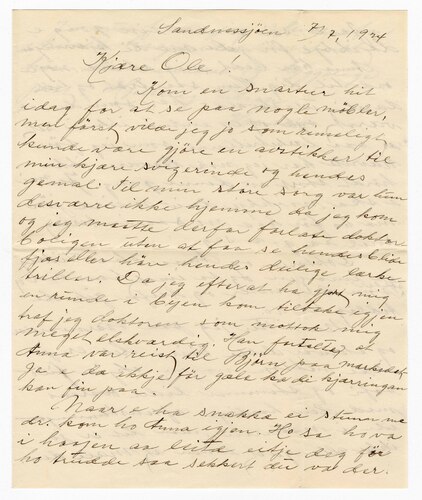 Sandnessjöen 7/7, 1924
Kjære Ole!
Kom en snartur hit
idag for at se paa nogle möbler,
men först vilde jeg jo som rimeligt
kunde være gjöre en avstikker til
min kjære svigerinde og hendes
gemal. Til min store sorg var hun
desværre ikke hjemme da jeg kom
og jeg maatte derfor forlate doktor
boligen uten at faa se hendes blide
fjæs eller höre hendes deilige lærke-
triller. Da jeg efter at ha gjort mig
en runde i byen kom tilbake igjen
traf jeg doktoren som mottok mig
meget elskværdig. Han fortalte at
Anna var reist til Björn paa markedet
Ja e da ikkje for gala ka di kjærringan
kan fin paa.
Naar e ha snakka ei stunn me
dr. kom ho Anna igjen. Ho sa ho va
i haajen aa leita eitje deg för
ho trudde saa sekkert du va der.